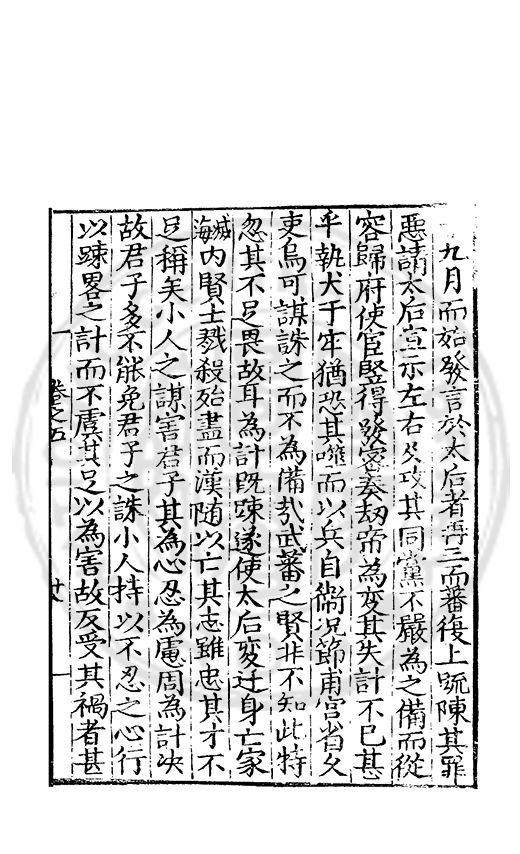 九月而始發言於太后者再三而蕃復上疏陳其罪
惡請太后宣示左右又攻其同黨不嚴為之備而從
容歸府使宦豎得發密奏劫帝為変其失計不已甚
乎執犬于牢猶恐其噬而以兵自衛况節甫宮省久
吏烏可謀誅之而不為備㢤武蕃之賢非不知此特
忽其不足畏故耳為計既踈遂使太后変迁身亡家
滅海内賢士戮殺殆盡而漢随以亡其志雖忠其才不
足稱矣小人之謀害君子其為心忍為慮周為計决
故君子多不能免君子之誅小人持以不忍之心行
以踈畧之計而不虞其足以為害故反受其禍者甚
卷之五
廿八